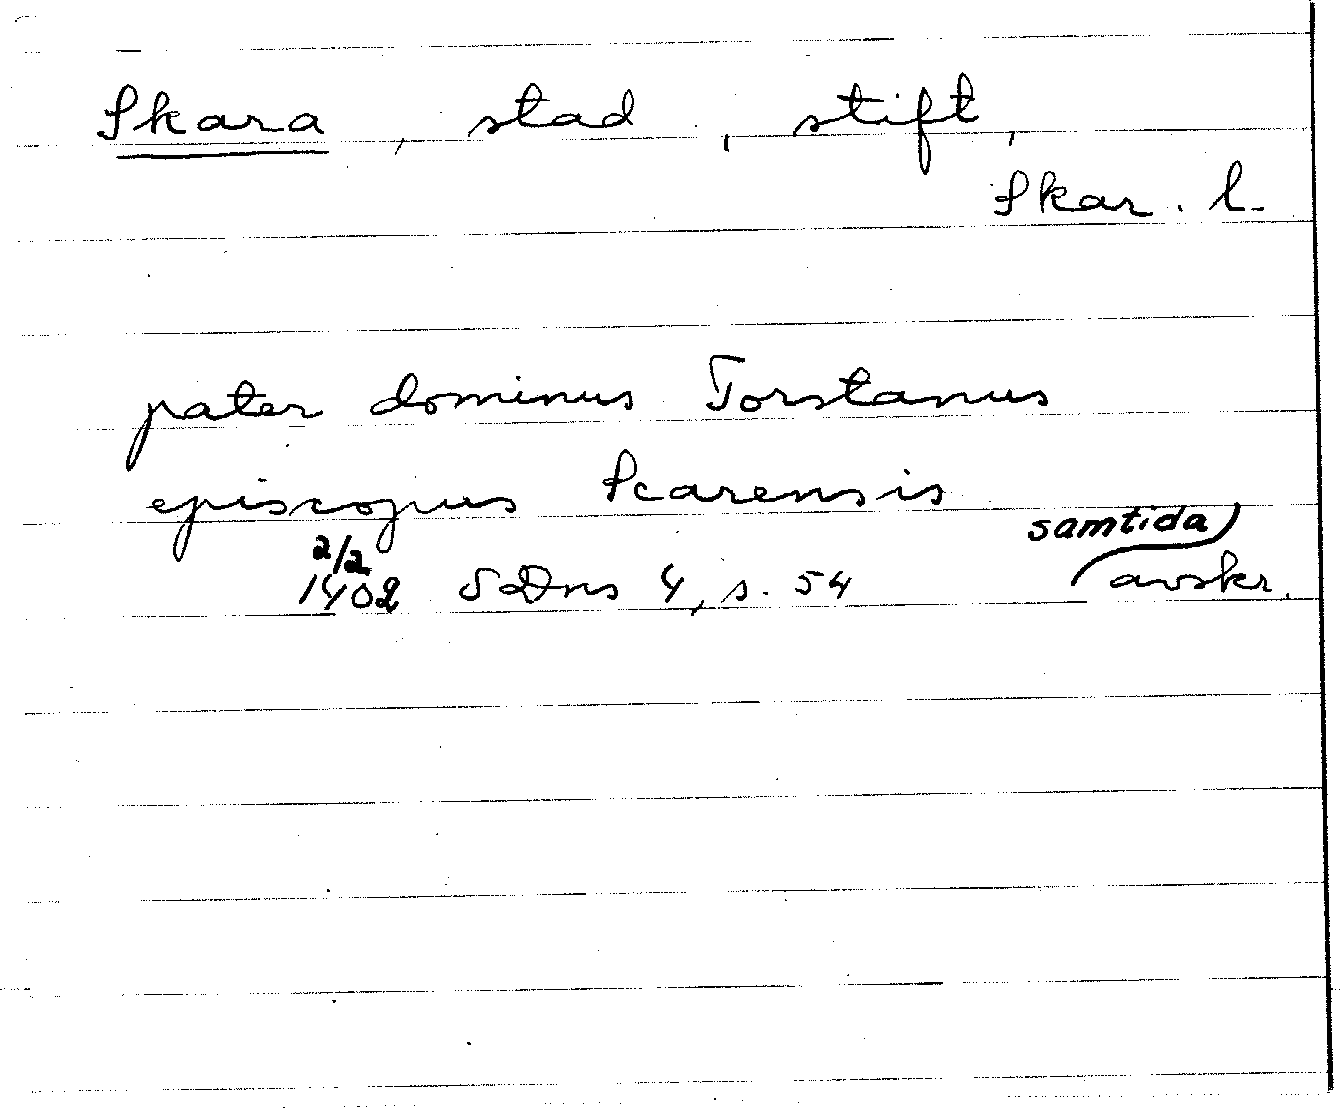 Skara, stad, stift,
Skar. l.
pater dominus Torstanus
episcopus Scarensis
samtida
2/2
1402 SDns 4, s. 54 avskr.